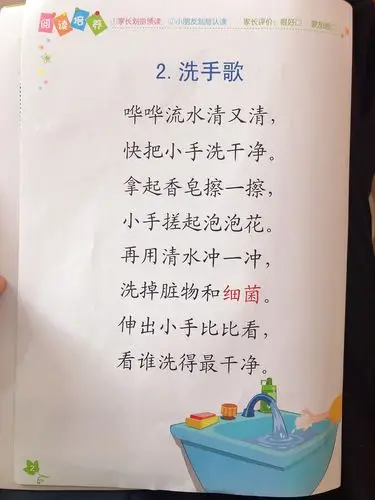 阅读培养 ①家长划指领读 ②小朋友划指认读 家长评价：很好□ 要加油□
2. 洗手歌
哗哗流水清又清，
快把小手洗干净。
拿起香皂擦一擦，
小手搓起泡泡花。
再用清水冲一冲，
洗掉脏物和细菌。
伸出小手比比看，
看谁洗得最干净。
2